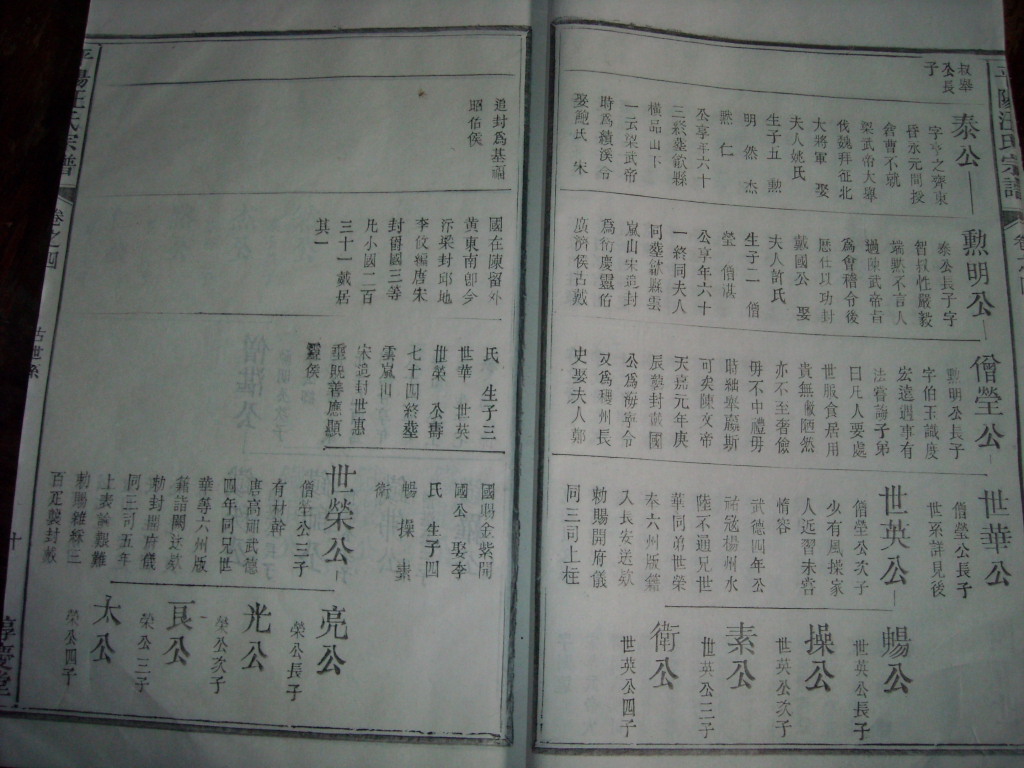 平陽汪氏宗譜
叔舉
公長
子
泰公
字亨之齊東
昏永元間授
倉曹不就
梁武帝大舉
伐魏拜征北
大將軍 娶
夫人姚氏
生子五 勲
明 然 杰
熙 仁
公享年六十
三終葬歙縣
橫品山下
一云梁武帝
時為績溪令
娶鮑氏 宋
追封為基福
昭伯侯
勲明公
泰公長子字
智叔性嚴毅
端默不言人
過陳武帝言
為會稽令後
歷仕以功封
戴國公 娶
夫人許氏
生子二 僧
瑩 僧湛
公享年六十
一終同夫人
同葬歙縣雲
嵐山宋追封
為衍慶靈佑
廣濟侯古戴
國在陳留外
黃東南即今
汴梁封邱地
李佼編唐宋
封留國三等
凡小國二百
三十一戴居
其一
僧瑩公
勲明公長子
字伯玉識度
宏遠遇事有
法嘗論子弟
曰凡人要處
世服食居用
貴無儉陋然
亦不至奢儉
毋不中禮毋
時紬舉羸斯
可矣陳文帝
天嘉元年庚
辰勅封戴國
公為海寧令
又為穩州長
史娶夫人鄭
氏 生子三
世華 世英
世榮 公壽
七十四終葬
雲嵐山
宋追封世惠
垂既善應顯
靈侯
世華公
僧瑩公長子
世系詳見後
世英公
僧瑩公次子
少有風操家
人近習未嘗
惰容
武德四年公
祐寇楊州水
陸不通兄世
華同弟世榮
本六州版籍
入長安送欵
勅賜開府儀
同三司上柱
國賜金紫開
國公 娶李
氏 生子四
暢 操 素
衛
世榮公
僧瑩公三子
有材幹
唐高祖武德
四年同兄世
華等六州版
籍詣闕送欵
勅封開府儀
同三司五年
上表論艱難
勅賜雜綵三
百疋襲封戴
暢公
世英公長子
操公
世英公次子
素公
世英公三子
衛公
世英公四子
亮公
榮公長子
光公
榮公次子
良公
榮公三子
太公
榮公四子
平陽汪氏宗譜
卷之四
古世系
十